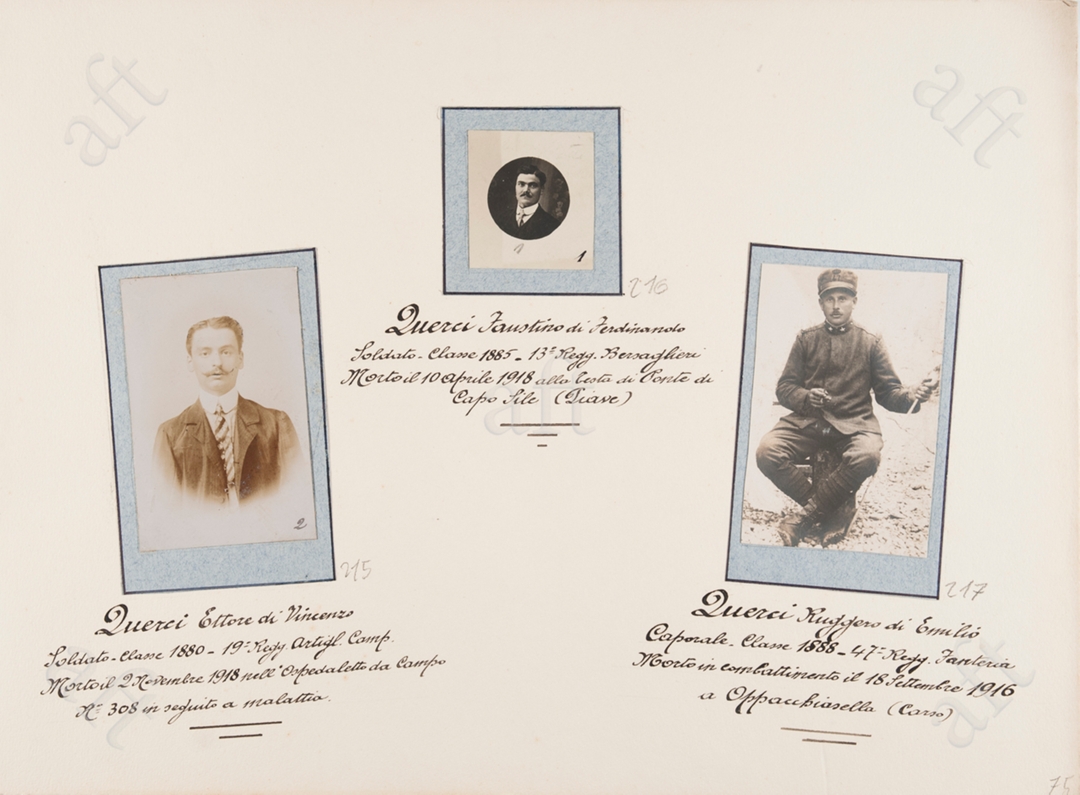 aft
aft
1
216
Querci Faustino di Ferdinando
Soldato - Classe 1885 - 13º Regg. Bersaglieri
Morto il 10 aprile 1918 alla testa di Ponte di
Capo Sile (Piave)
aft
2
215
Querci Ettore di Vincenzo
Soldato - Classe 1880 - 19º Regg. Artigl. Camp.
Morto il 2 Novembre 1918 nell' Ospedaletto da Campo
Nº 308 in seguito a malattia.
217
Querci Ruggero di Emilio
Caporale - Classe 1888 - 47º Regg. Fanteria
Morto in combattimento il 18 Settembre 1916
a Oppacchiasella (Carso)
aft
75